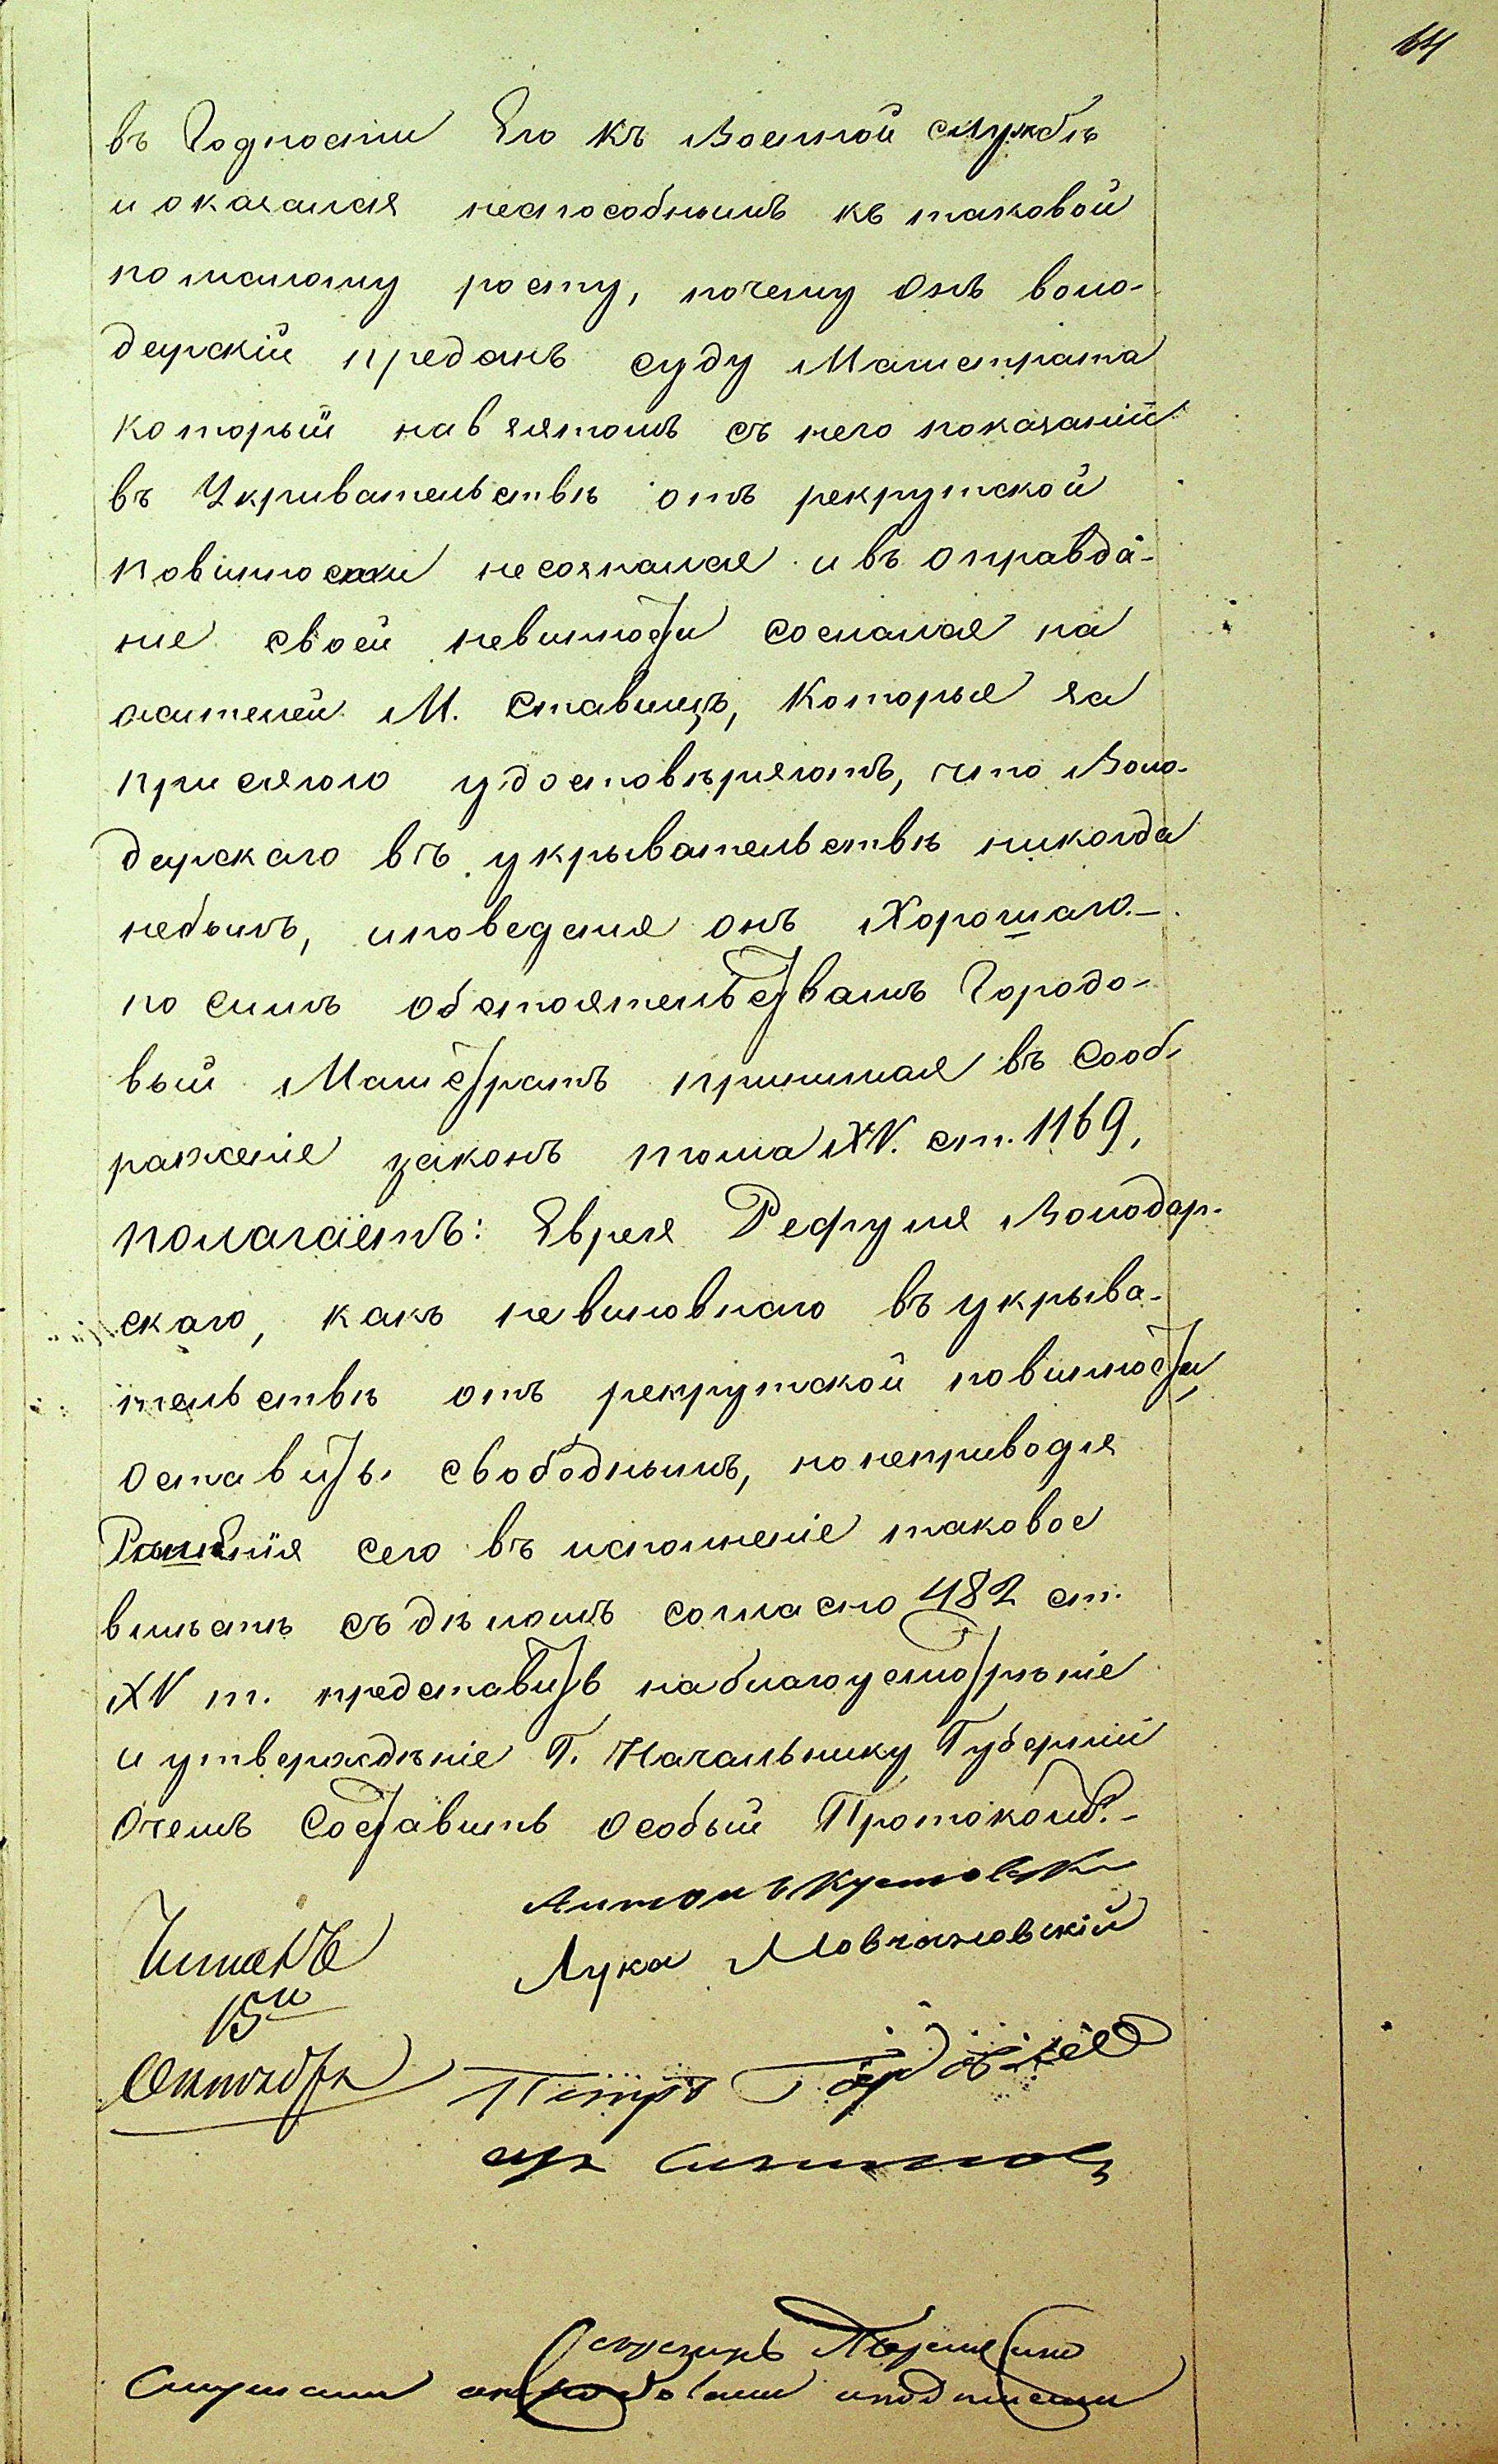 64
въ Годности Его къ Военной службѣ
и оказался неспособнымъ къ таковой
по малому росту, почему онъ Воло-
дарскій преданъ суду Магистрата
который навзятомъ съ него показаніи
въ Укривательствѣ отъ рекрутской
повинности несознался и въ оправда-
ніе своей невинности сослался на
жителей М. Ставищъ, которые за
присягою удостовѣряютъ, что Воло-
дарскаго въ укрывательствѣ никогда
небылъ, иповеденія онъ Хорошаго. –
по симъ обстоятельствамъ Городо-
вый Магистратъ принимая въ Сооб-
раженіе законъ тома XV. ст. 1169,
полагаетъ: Еврея Рефуля Володар-
скаго, какъ невиновнаго въ укрыва-
тельствѣ отъ рекрутской повинности,
оставить свободнымъ, но неприводя
Рѣшенія сего въ исполненіе таковое
вмѣстѣ съ дѣломъ согласно 482 ст.
XV т. представить наблагоусмотрѣніе
и утвержденіе Г. Начальнику Губерніи
очемъ Составить особый Протоколъ. –
Антонъ
Лука Мовчановскій
15го
Октября
Петръ
Слушали иподписали